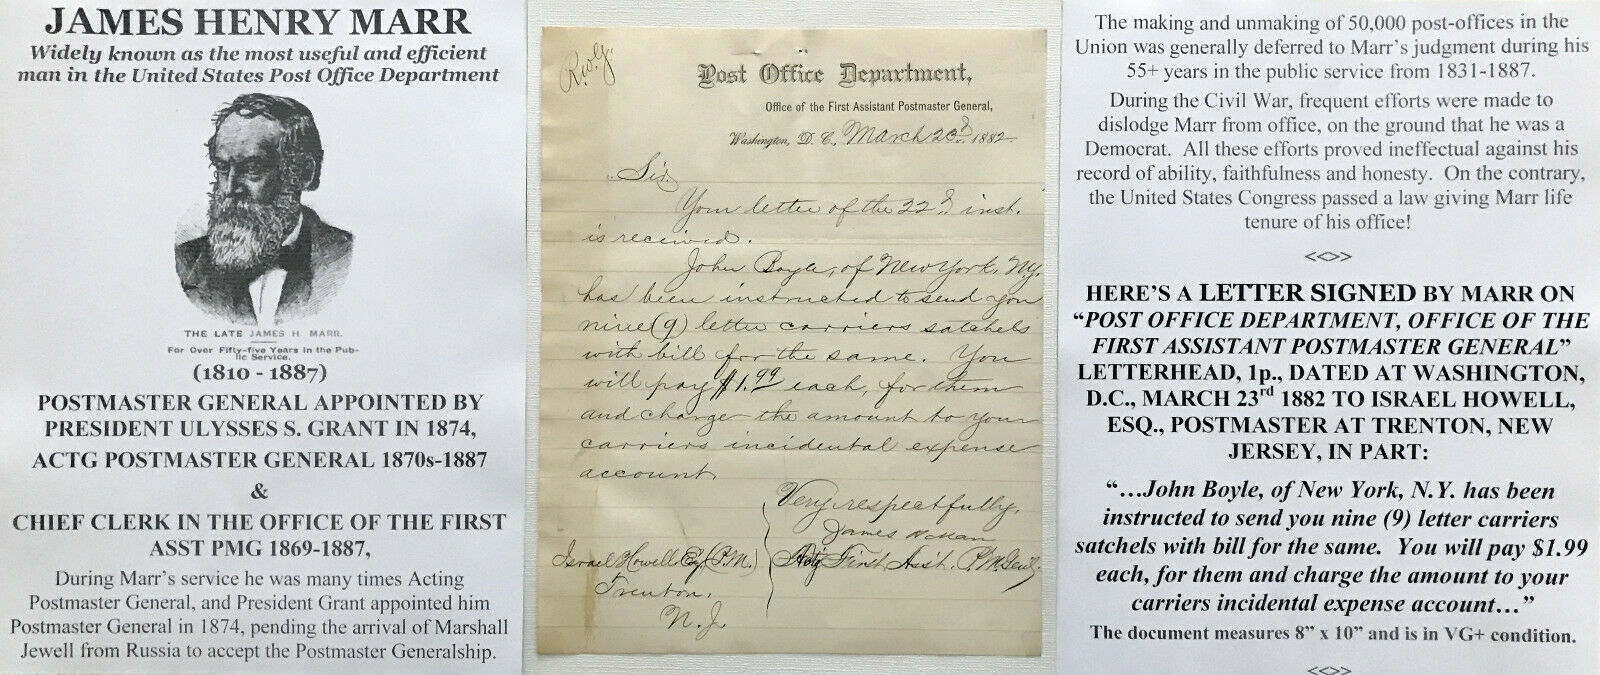 JAMES HENRY MARR
Widely known as the most useful and efficient
man in the United States Post Office Department
THE LATE JAMES H. MARR.
For Over Fifty-five Years in the Pub-
lic Service.
(1810 - 1887)
POSTMASTER GENERAL APPOINTED BY
PRESIDENT ULYSSES S. GRANT IN 1874,
ACTG POSTMASTER GENERAL 1870s-1887
&
CHIEF CLERK IN THE OFFICE OF THE FIRST
ASST PMG 1869-1887,
During Marr's service he was many times Acting
Postmaster General, and President Grant appointed him
Postmaster General in 1874, pending the arrival of Marshall
Jewell from Russia to accept the Postmaster Generalship.
Post Office Department,
Office of the First Assistant Postmaster General,
Washington, D. C., March 23d. 1882
Sir,
Your letter of the 22d. inst.
is received.
John Boyle, of New York, N.Y.
has been instructed to send you
nine (9) letter carriers satchels
with bill for the same. You
will pay $1.99 each, for them
and charge the amount to your
carriers incidental expense
account.
Very respectfully,
James H Marr
Actg First Asst. P.M. Genl.
Israel Howell Esq (P.M.)
Trenton.
N.J.
The making and unmaking of 50,000 post-offices in the
Union was generally deferred to Marr's judgment during his
55+ years in the public service from 1831-1887.
During the Civil War, frequent efforts were made to
dislodge Marr from office, on the ground that he was a
Democrat. All these efforts proved ineffectual against his
record of ability, faithfulness and honesty. On the contrary,
the United States Congress passed a law giving Marr life
tenure of his office!
<<>>
HERE'S A LETTER SIGNED BY MARR ON
“POST OFFICE DEPARTMENT, OFFICE OF THE
FIRST ASSISTANT POSTMASTER GENERAL”
LETTERHEAD, 1p., DATED AT WASHINGTON,
D.C., MARCH 23rd 1882 TO ISRAEL HOWELL,
ESQ., POSTMASTER AT TRENTON, NEW
JERSEY, IN PART:
“…John Boyle, of New York, N.Y. has been
instructed to send you nine (9) letter carriers
satchels with bill for the same. You will pay $1.99
each, for them and charge the amount to your
carriers incidental expense account…”
The document measures 8” x 10” and is in VG+ condition.
<<>>